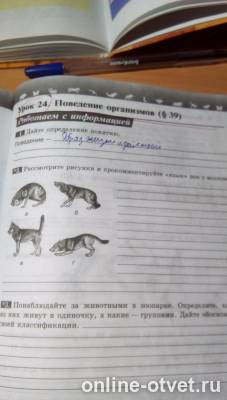 Урок 24. Поведение организмов (§ 39)
Работаем с информацией
1. Дайте определение понятию.
Поведение –
2. Рассмотрите рисунки и прокомментируйте «язык» поз у
а б
в г
3. Понаблюдайте за животными в зоопарке. Определите,
них живут в одиночку, а какие – группами. Дайте
своей классификации.
online-otvet.ru